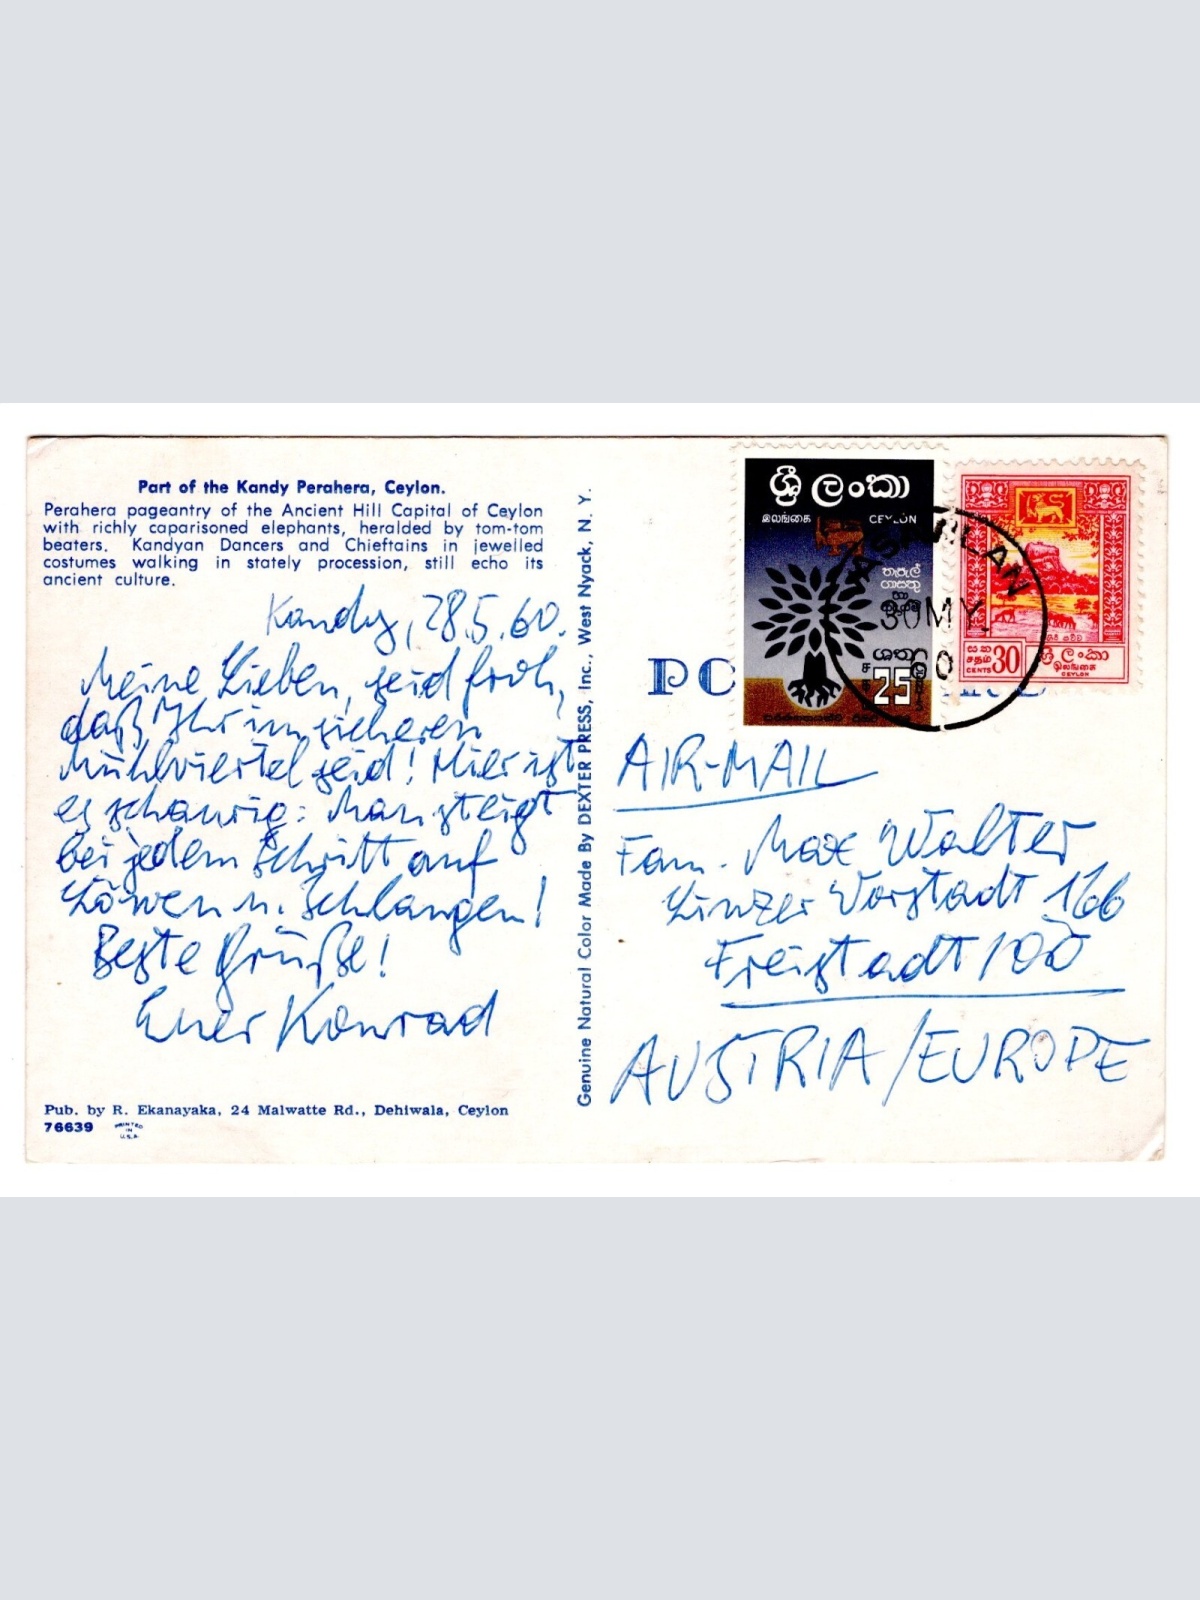 Part of the Kandy Perahera, Ceylon.
Perahera pageantry of the Ancient Hill Capital of Ceylon
with richly caparisoned elephants, heralded by tom-tom
beaters. Kandyan Dancers and Chieftains in jewelled
costumes walking in stately procession, still echo its
ancient culture.
Kandy, 28.5.60.
Meine Lieben, seid froh,
daß Ihr im sicheren
Mühlviertel seid! Hier ist
es schaurig: Man steigt
bei jedem Schritt auf
Löwen u. Schlangen!
Beste Grüße!
Euer Konrad
Pub. by R. Ekanayaka, 24 Malwatte Rd., Dehiwala, Ceylon
76639
PRINTED
IN
U.S.A.
Genuine Natural Color Made By DEXTER PRESS, Inc., West Nyack, N. Y.
PO
ශ්‍රී ලංකා
இலங்கை CEYLON
25
30 MY
60
සත
சதம்
CENTS 30
ශ්‍රී ලංකා
இலங்கை
CEYLON
AIR-MAIL
Fam. Max Walter
Linzer Vorstadt 166
Freistadt / OÖ
AUSTRIA / EUROPE